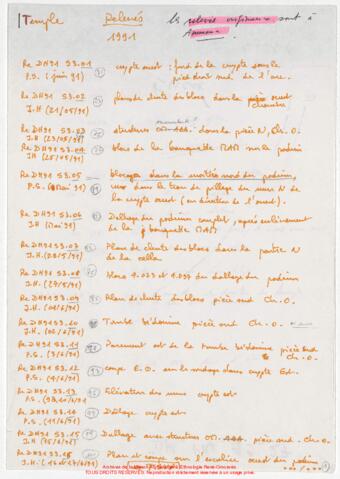 Temple Relevés les relevés originaux sont à
1991
Re DH91 53.01 crypte ouest : fond de la crypte sous le
P.G. (juin 91) piédroit sud de l'arc.
Re DH91 53.02 plan de chute des blocs dans la pièce ouest
J.H (21/05/91) chambre
Re DH91 53.03 structures dans la pièce N, Ch. O.
J.H (23/05/91)
Re DH91 53.04 blocs de la banquette MAM sur le podium
JH (25/05/91)
Re DH91 53.05 blocage dans la moitié sud du podium,
P.G. (Mai 91) vue dans le trou de pillage du mur N de
la crypte ouest (en direction de l'ouest).
Re DH91 53.06 Dallage du podium complet, après enlèvement
JH (Mai 91) de la banquette MAM
Re DH91 53.07 Plan de chute des blocs dans la partie N
J.H. (28/5/91) de la cella
Re DH91 53.08 blocs 9.023 et 9.097 du dallage du podium
J.H. (29/5/91)
Re DH91 53.09 Plan de chute des blocs pièce sud Ch. O.
J.H. (01/6/91)
Re DH91 53.10 Tombe bédouine pièce sud Ch. O.
J.H. (02/6/91)
Re DH91 53.11 Parement est de la tombe bédouine pièce sud
P.G. (3/6/91) Ch. O.
Re DH91 53.12 coupe E.O. sur le sondage dans crypte Est.
P.G. (4/6/91)
Re DH91 53.13 Elévation des murs crypte est
P.G. (9&10/6/91)
Re DH91 53.14 Dallage crypte est
P.G. (11/6/91)
Re DH91 53.15 Dallage avec structures pièce sud Ch. O.
J.H. (15/6/91)
Re DH91 53.16 Plan et coupe sur l'escalier ouest du podium
J.H. (16 et 17/6/91)
TOUS DROITS RESERVES. Reproduction strictement réservée à un usage privé.